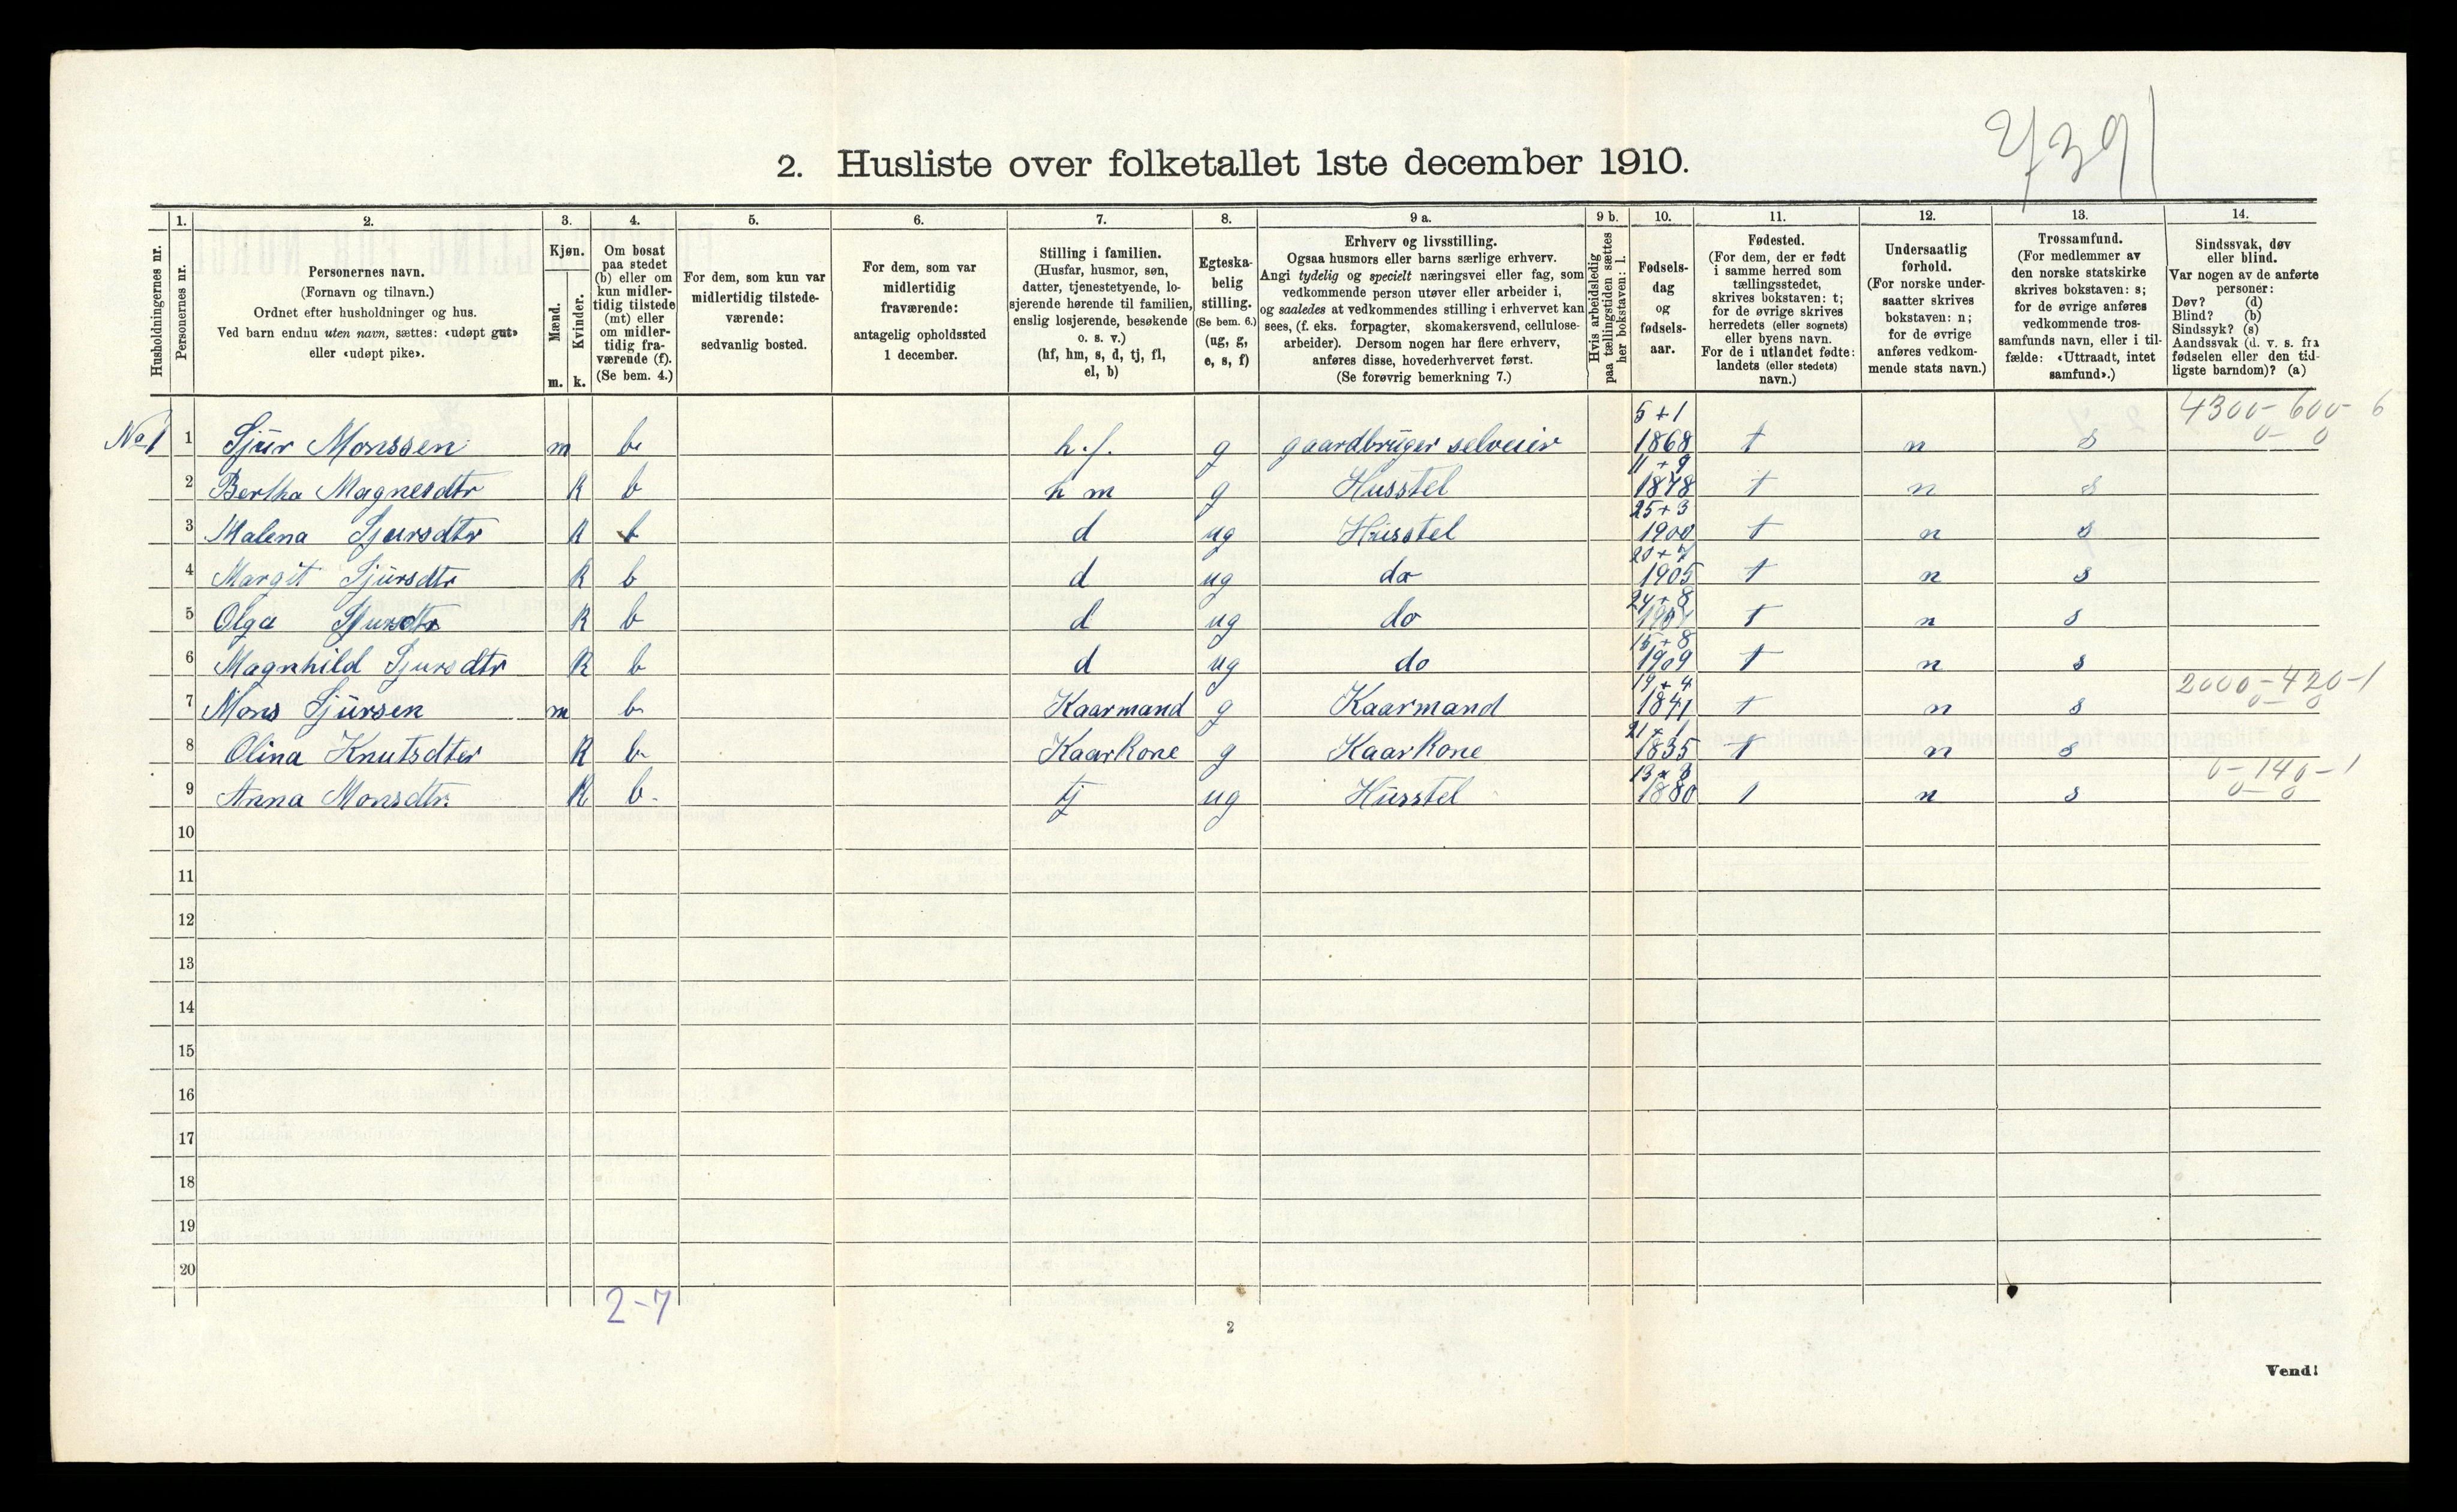 2391
2. Husliste over folketallet 1ste december 1910.
1. 2. 3. 4. 5. 6. 7. 8. 9 a. 9 b. 10. 11. 12. 13. 14.
Husholdningernes nr.
Personernes nr.
Personernes navn.
(Fornavn og tilnavn.)
Ordnet efter husholdninger og hus.
Ved barn endnu uten navn, sættes: «udøpt gut»
eller «udøpt pike».
Kjøn.
Mænd.
Kvinder.
m. k.
Om bosat
paa stedet
(b) eller om
kun midler-
tidig tilstede
(mt) eller
om midler-
tidig fra-
værende (f).
(Se bem. 4.)
For dem, som kun var
midlertidig tilstede-
værende:
sedvanlig bosted.
For dem, som var
midlertidig
fraværende:
antagelig opholdssted
1 december.
Stilling i familien.
(Husfar, husmor, søn,
datter, tjenestetyende, lo-
sjerende hørende til familien,
enslig losjerende, besøkende
o. s. v.)
(hf, hm, s, d, tj, fl,
el, b)
Egteska-
belig
stilling.
(Se bem. 6.)
(ug, g,
e, s, f)
Erhverv og livsstilling.
Ogsaa husmors eller barns særlige erhverv.
Angi tydelig og specielt næringsvei eller fag, som
vedkommende person utøver eller arbeider i,
og saaledes at vedkommendes stilling i erhvervet kan
sees, (f. eks. forpagter, skomakersvend, cellulose-
arbeider). Dersom nogen har flere erhverv,
anføres disse, hovederhvervet først.
(Se forøvrig bemerkning 7.)
Hvis arbeidsledig
paa tællingstiden sættes
her bokstaven: l.
Fødsels-
dag
og
fødsels-
aar.
Fødested.
(For dem, der er født
i samme herred som
tællingsstedet,
skrives bokstaven: t;
for de øvrige skrives
herredets (eller sognets)
eller byens navn.
For de i utlandet fødte:
landets (eller stedets)
navn.)
Undersaatlig
forhold.
(For norske under-
saatter skrives
bokstaven: n;
for de øvrige
anføres vedkom-
mende stats navn.)
Trossamfund.
(For medlemmer av
den norske statskirke
skrives bokstaven: s;
for de øvrige anføres
vedkommende tros-
samfunds navn, eller i til-
fælde: «Uttraadt, intet
samfund».)
Sindssvak, døv
eller blind.
Var nogen av de anførte
personer:
Døv? (d)
Blind? (b)
Sindssyk? (s)
Aandssvak (d. v. s. fra
fødselen eller den tid-
ligste barndom)? (a)
5 + 1 4300-600-6
No 1 1 Sjur Monssen m b h.f. g gaardbruger selveier 1868 t n s 0- 0
11 + 9
2 Bertha Magnesdtr K b h m g Husstel 1878 t n s
25 + 3
3 Malena Sjursdtr K b d ug Husstel 1900 t n s
20 + 7
4 Margit Sjursdtr K b d ug do 1905 t n s
24 + 8
5 Olga Sjursdtr K b d ug do t n s
15 + 8
6 Magnhild Sjursdtr K b d ug do 1909 t n s
19 + 4 2000-420-1
7 Mons Sjursen m b Kaarmand g Kaarmand 1841 t n s 0- 0
21 + 1
8 Olina Knutsdter K b Kaarkone g Kaarkone 1835 t n s
13 + 3 0-140-1
9 Anna Monsdtr. K b tj ug Husstel 1880 t n s 0- 0
10
11
12
13
14
15
16
17
18
19
20
2-7
2
Vend!